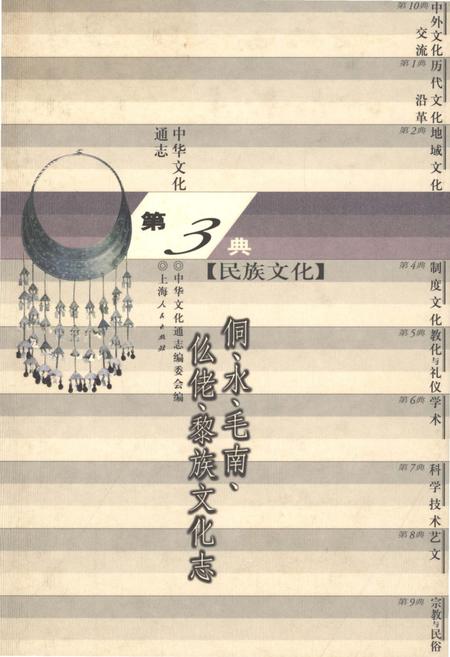 第10典
中外文化
交流
第1典
历代文化
沿革
第2典
地域文化
中华文化
通志
第3典
【民族文化】
◎中华文化通志编委会编
◎上海人民出版社
侗、水、毛南、
仫佬、黎族文化志
第4典
制度文化
第5典
教化与礼仪
第6典
学术
第7典
科学技术
第8典
艺文
第9典
宗教与民俗